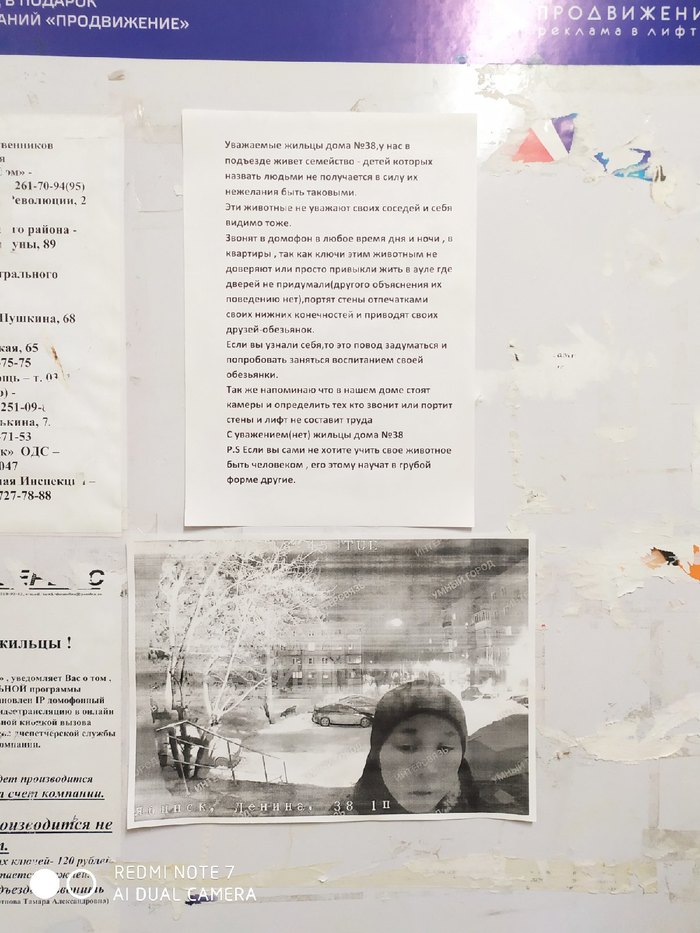 В ПОДАРОК
АНИЙ «ПРОДВИЖЕНИЕ»
ПРОДВИЖЕНИ
реклама в лифт
твенников
261-70-94(95)
еволюции, 2
го района -
уны, 89
трального
Пушкина, 68
кая, 65
-75-75
251-09-
ькина, 7.
-71-53
к» ОДС –
047
ная Инспекц
727-78-88
Уважаемые жильцы дома №38,у нас в
подъезде живет семейство - детей которых
назвать людьми не получается в силу их
нежелания быть таковыми.
Эти животные не уважают своих соседей и себя
видимо тоже.
Звонят в домофон в любое время дня и ночи , в
квартиры , так как ключи этим животным не
доверяют или просто привыкли жить в ауле где
дверей не придумали(другого объяснения их
поведению нет),портят стены отпечатками
своих нижних конечностей и приводят своих
друзей-обезьянок.
Если вы узнали себя,то это повод задуматься и
попробовать заняться воспитанием своей
обезьянки.
Так же напоминаю что в нашем доме стоят
камеры и определить тех кто звонит или портит
стены и лифт не составит труда
С уважением(нет) жильцы дома №38
P.S Если вы сами не хотите учить свое животное
быть человеком , его этому научат в грубой
форме другие.
TUE
УМНЫЙ ГОРОД
ябинск, Ленина, 38 1п
жильцы !
» , уведомляет Вас о том ,
ЬНОЙ программы
тановлен IP домофонный
видеотрансляцию в онлайн
ьной кнопкой вызова
диспетчерской службы
омпании.
дет производится
а счет компании.
роизводится не
их ключей- 120 рубле
REDMI NOTE 7
AI DUAL CAMERA